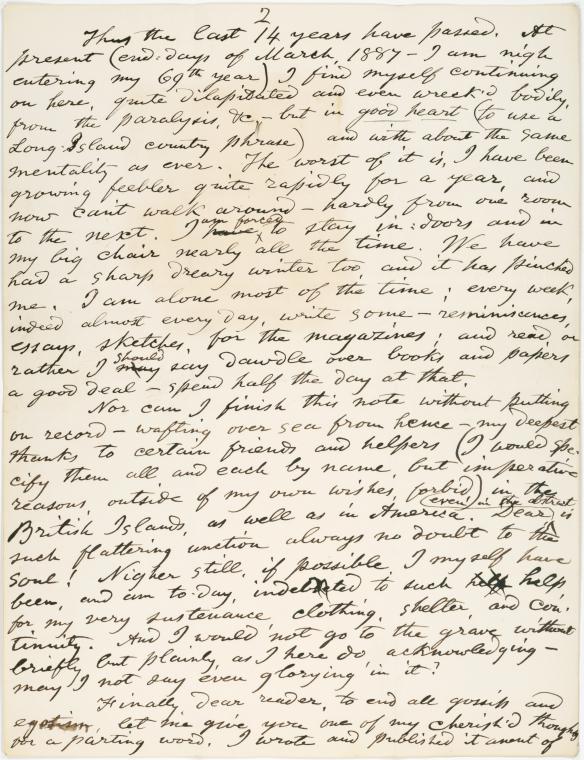 2
Thus the last 14 years have passed. At
present (end-days of March, 1887 – I am nigh
entering my 69th year) I find myself continuing
on here, quite dilapidated and even wreck'd bodily,
from the paralysis, &c – but in good heart (to use a
Long Island country phrase) and with about the same
mentality as ever. The worst of it is, I have been
growing feebler quite rapidly for a year, and
now can't walk around – hardly from one room
to the next. I am forced to stay in-doors and in
my big chair nearly all the time. We have
had a sharp dreary winter too, and it has pinched
me. I am alone most of the time; every week,
indeed almost every day, write some – reminiscences,
essays, sketches, for the magazines; and read, or
rather I should say dawdle over books and papers
a good deal – spend half the day at that.
Nor can I finish this note without putting
on record – wafting over sea from hence – my deepest
thanks to certain friends and helpers (I would spe-
cify them all and each by name, but imperative
reasons, outside of my own wishes, forbid) in the
British Islands, as well as in America. Dear, (even in the abstract) is
such flattering unction always no doubt to the
soul! Nigher still, if possible, I myself have
been, and am to-day, indebted to such help
for my very sustenance, clothing, shelter, and con-
tinuity. And I would not go to the grave without
briefly, but plainly, as I here do, acknowledging –
may I not say even glorying in it?
Finally, dear reader, to end all gossip and
egotism, let me give you one of my cherish'd thoughts
for a parting word. I wrote and published it anent of